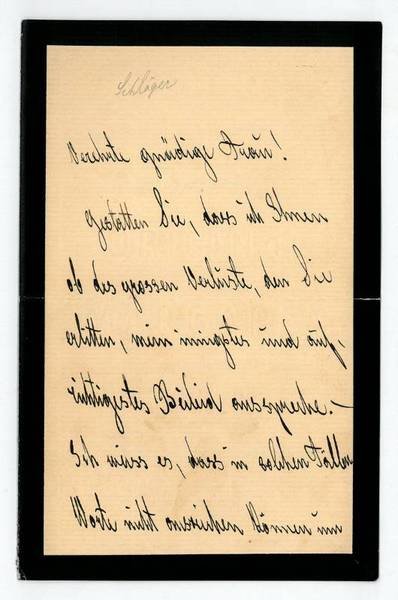 Schläger
Verehrte gnädige Frau!
Gestatten Sie, dass ich Ihnen
ob des grossen Verluste, den Sie
erlitten, mein innigstes und auf-
richtigstes Beileid ausspreche. –
Ich weiss es, dass in solchen Fällen
Worte nicht ausreichen können um